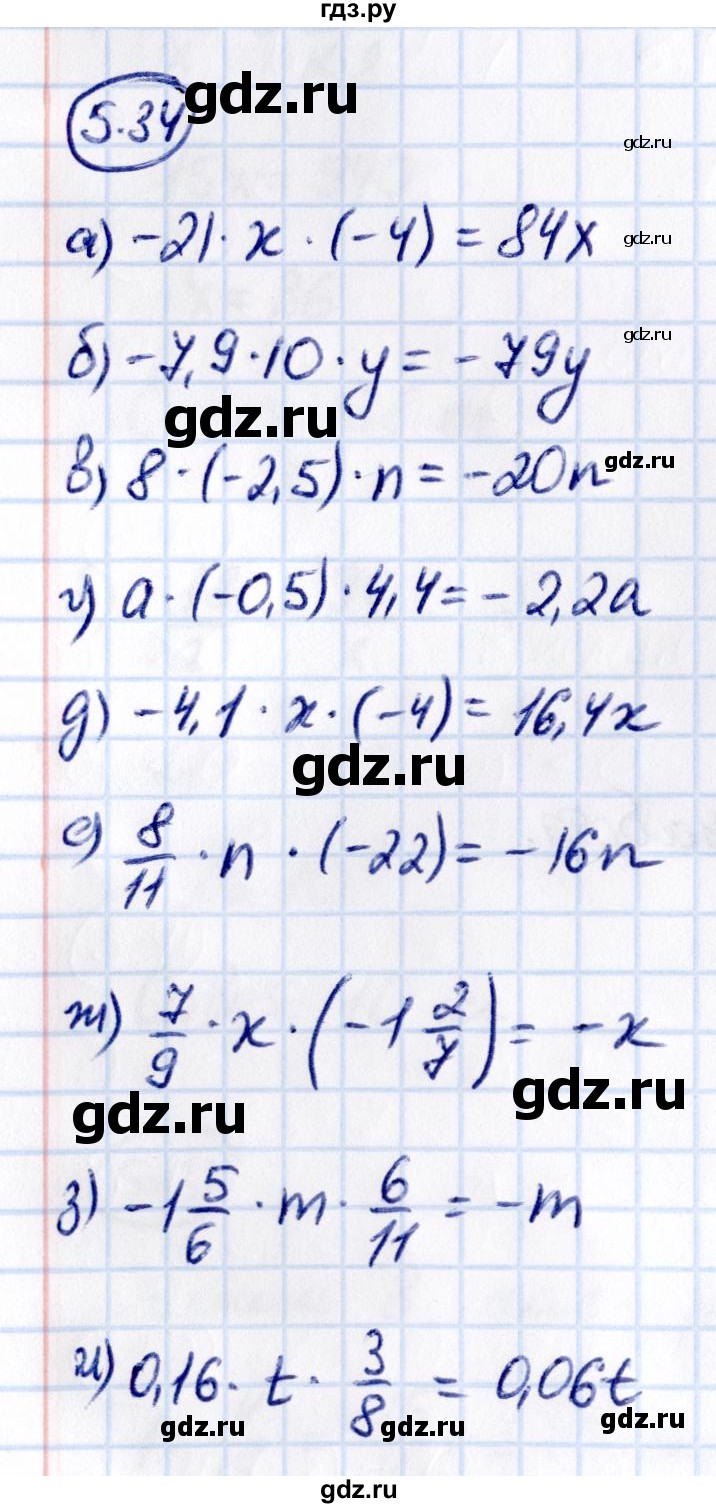 гдз.ру
5.34 gdz.ru
gdz.ru
а) -21 · x · (-4) = 84x gdz.ru
б) -7,9 · 10 · y = -79y gdz.ru
gdz.ru
в) 8 · (-2,5) · n = -20n gdz.ru
г) a · (-0,5) · 4,4 = -2,2a
д) -4,1 · x · (-4) = 16,4x
gdz.ru
е) 8/11 · n · (-22) = -16n
ж) 7/9 · x · (-1 2/7) = -x
gdz.ru gdz.ru
з) -1 5/6 · m · 6/11 = -m
и) 0,16 · t · 3/8 = 0,06t
gdz.ru gdz.ru gdz.ru
gdz.ru